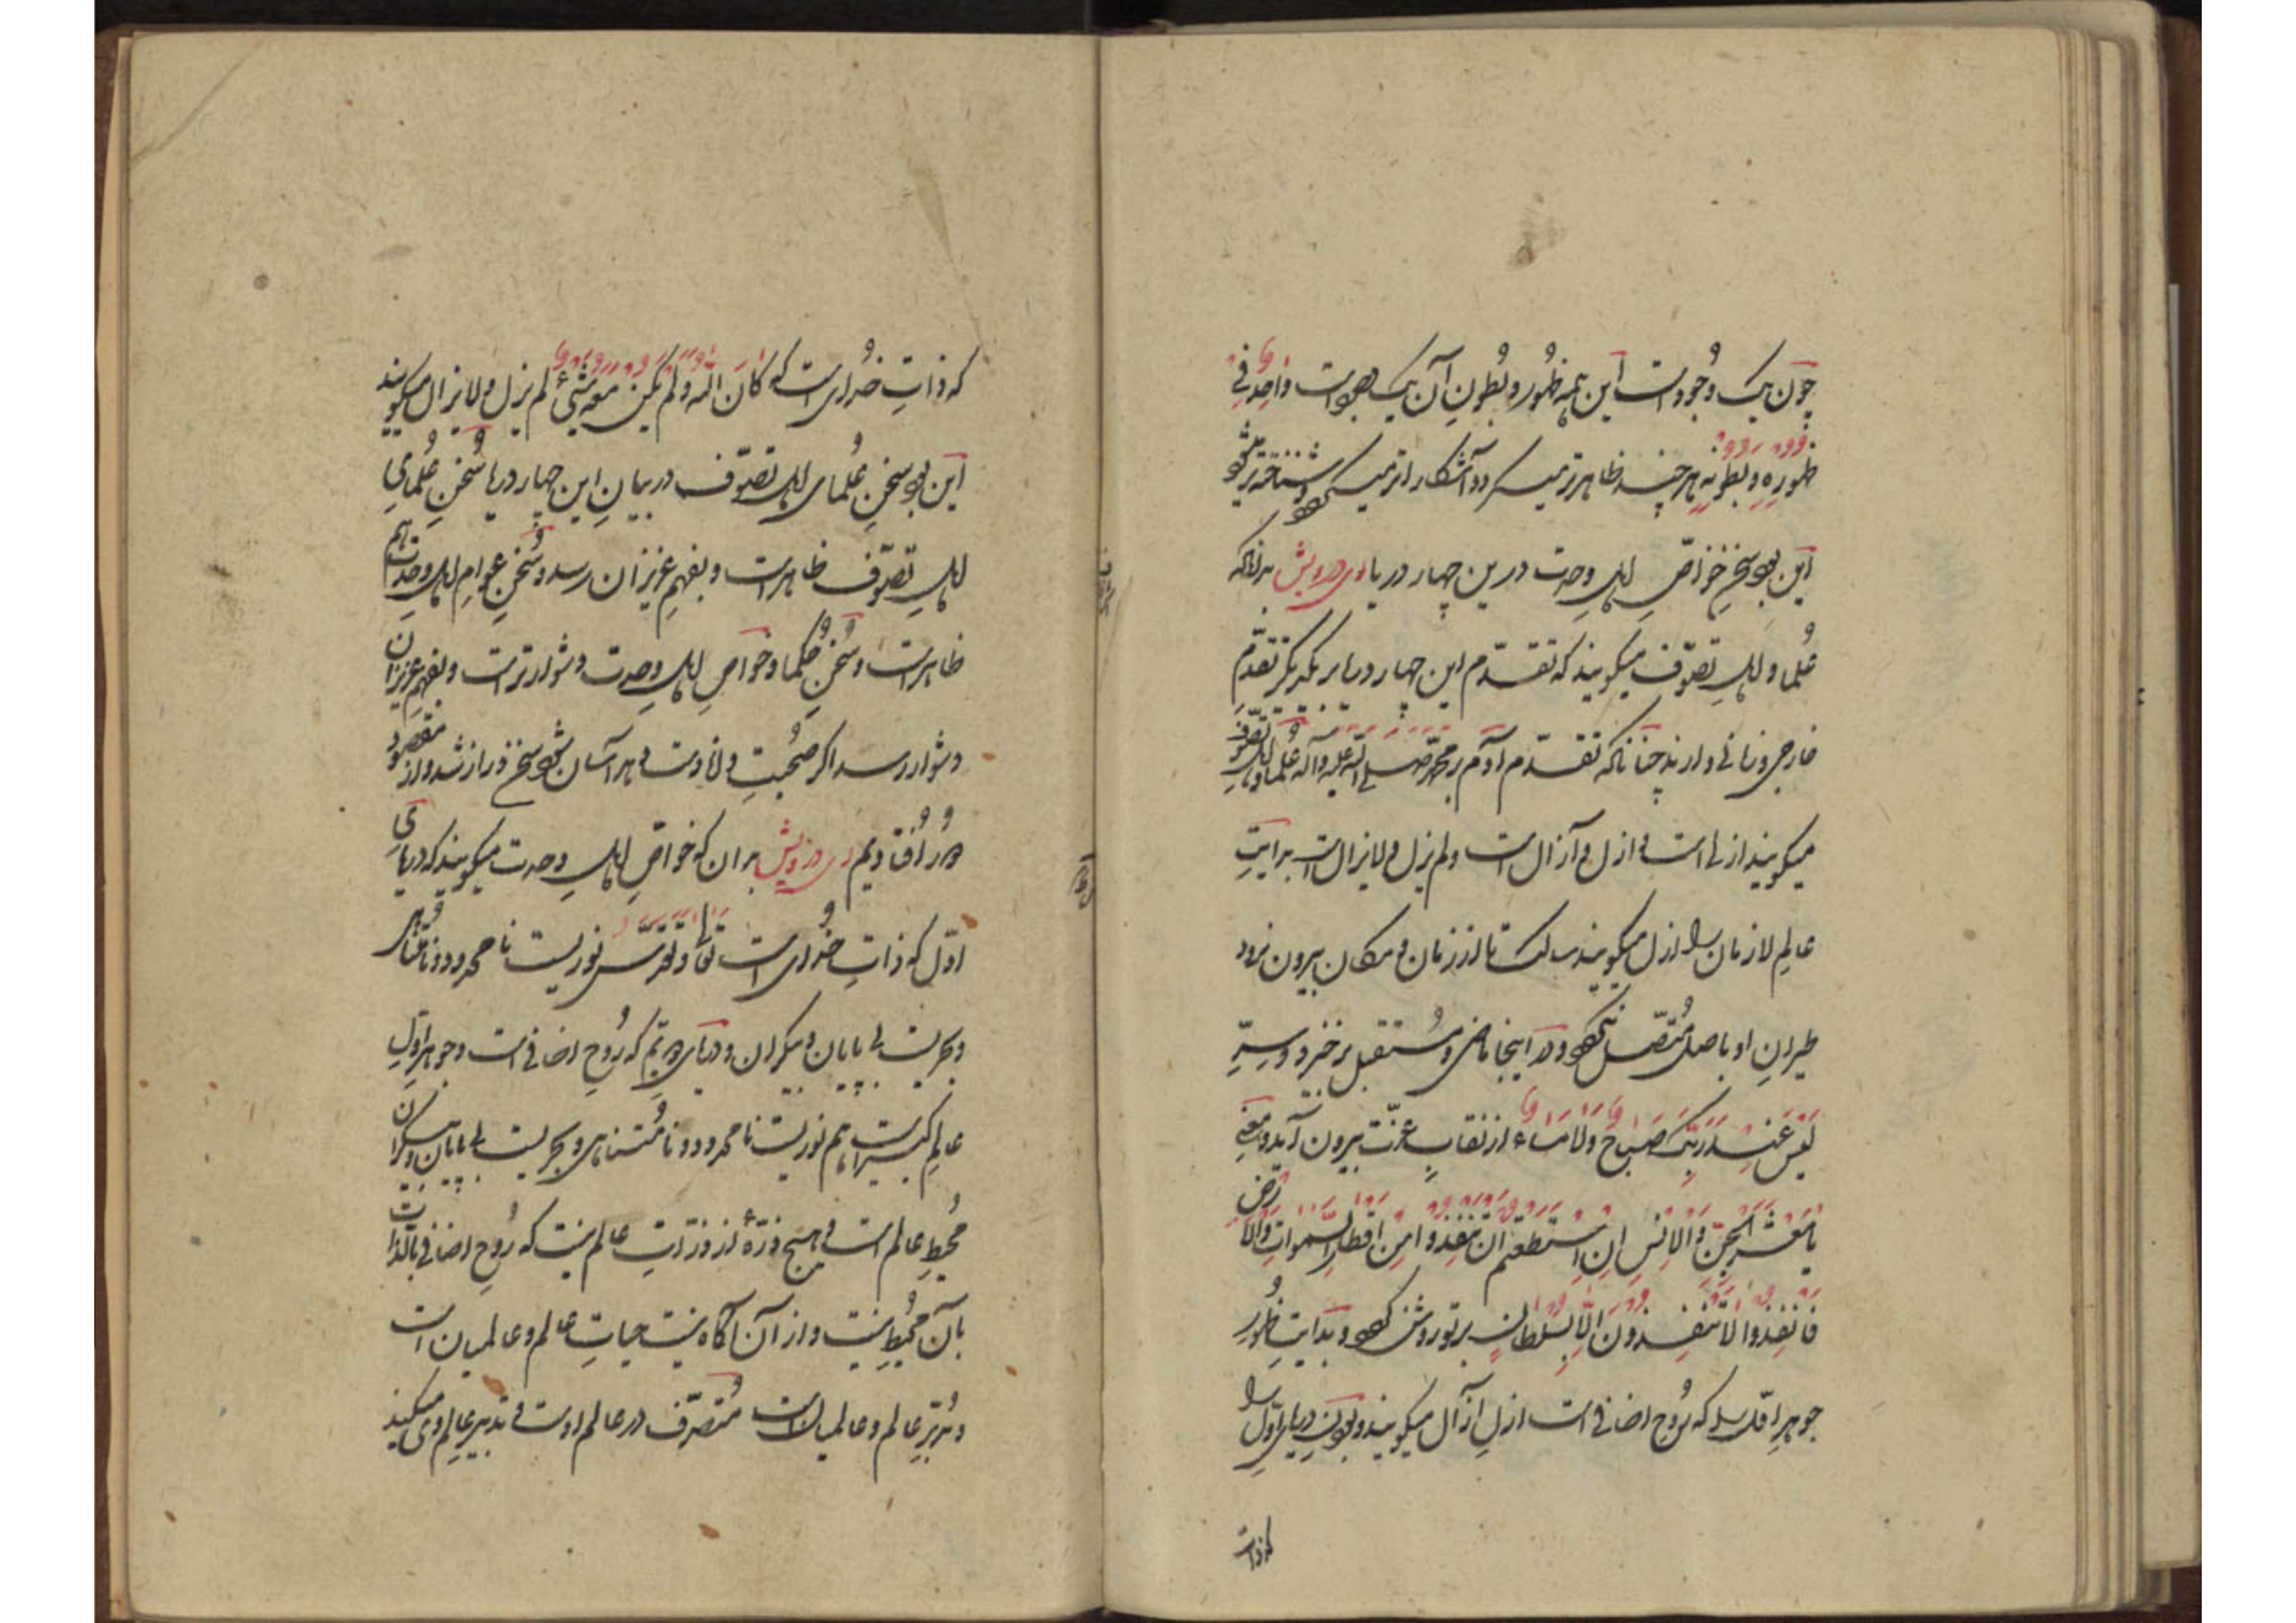 چون یک وجودست این همه ظهور و بطون آن یک وجودست واحد فی
ظهوره و بطونه هر چند ظاهرتر میکردد آشکاراتر میکردد و شناخته‌تر میشود
این بود سخن خواص اهل وحدت درین چهار دریا ای درویش بدانکه
علما و اهل تصوف میکویند که تقدم این چهار دریا بر یکدیکر تقدم
خارجی و زمانی دارند چنانکه تقدم آدم بر محمد صلی الله علیه و آله علما و اهل تصوف
میکویند ازلی است و ازل و آزال است و لم یزل و لایزال است بدایت
عالم لازمان را ازل میکویند سالک تا از زمان و مکان بیرون نرود
طیران او باصل متصل نکردد و اینجا ماضی و مستقبل برخیزد و سرّ
لیس عند ربک صباح ولا مساء از نقاب عزت بیرون آید و معنی
یا معشر الجن والانس ان استطعتم ان تنفذوا من اقطار السموات والارض
فانفذوا لا تنفذون الا بسلطان بر تو روشن کردد و بدایت ظهور
جوهر اول را که روح اضافی است ازل آزال میکویند و بودن دریای اول را
که ذات
که ذات خدای است که کان الله ولم یکن معه شیئ لم یزل و لایزال میکویند
این بود سخن علمای اهل تصوف در بیان این چهار دریا و سخن علمای
اهل تصوف ظاهرست و بفهم عزیزان رسد و سخن عوام اهل وحدت هم
ظاهرست و سخن حکما و خواص اهل وحدت دشوارترست و بفهم عزیزان
دشوار رسد اکر صحبت ولادت و هر آسان شود سخن دراز شد و از مقصود
دور افتادیم ای درویش بدان که خواص اهل وحدت میکویند که دریای
اول که ذات خدای است تعالی و تقدس نوریست نامحدود و نامتناهی
و بحریست بی پایان و بیکران و دریای دویم که روح اضافی است و جوهر اول
عالم کبیرست هم نوریست نامحدود و نامتناهی و بحریست بی پایان و بیکران
محیط عالم است و هیچ ذرهٔ از ذرات عالم نیست که روح اضافی بالذات
بآن محیط نیست و از آن آکاه نیست حیات عالم و عالمیان است
و مدبر عالم و عالمیان است متصرف در عالم اوست و تدبیر عالم وی میکند